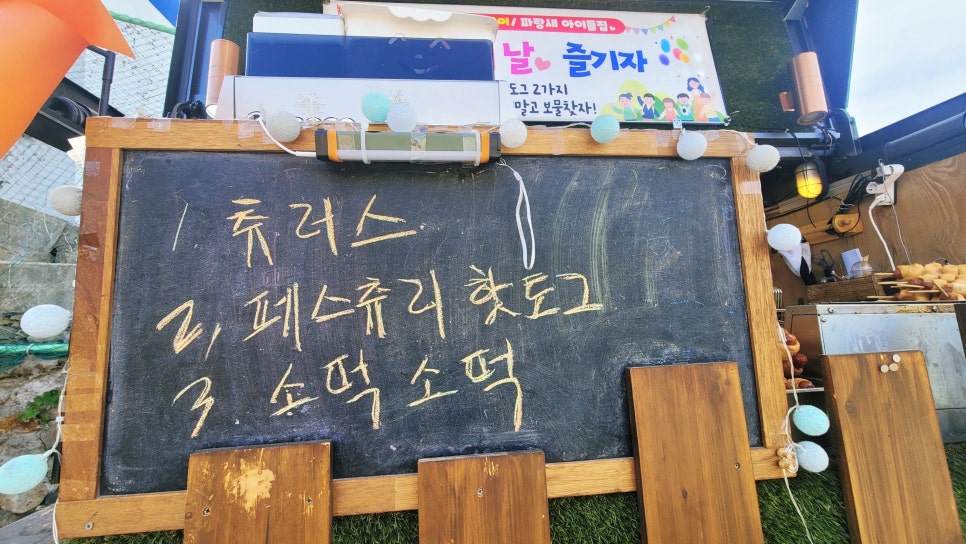 이! 파랑새 아이들집
날 즐기자
도그 2가지
말고 보물찾자!
1. 츄러스
2, 페스츄리 핫도그
3 소떡 소떡